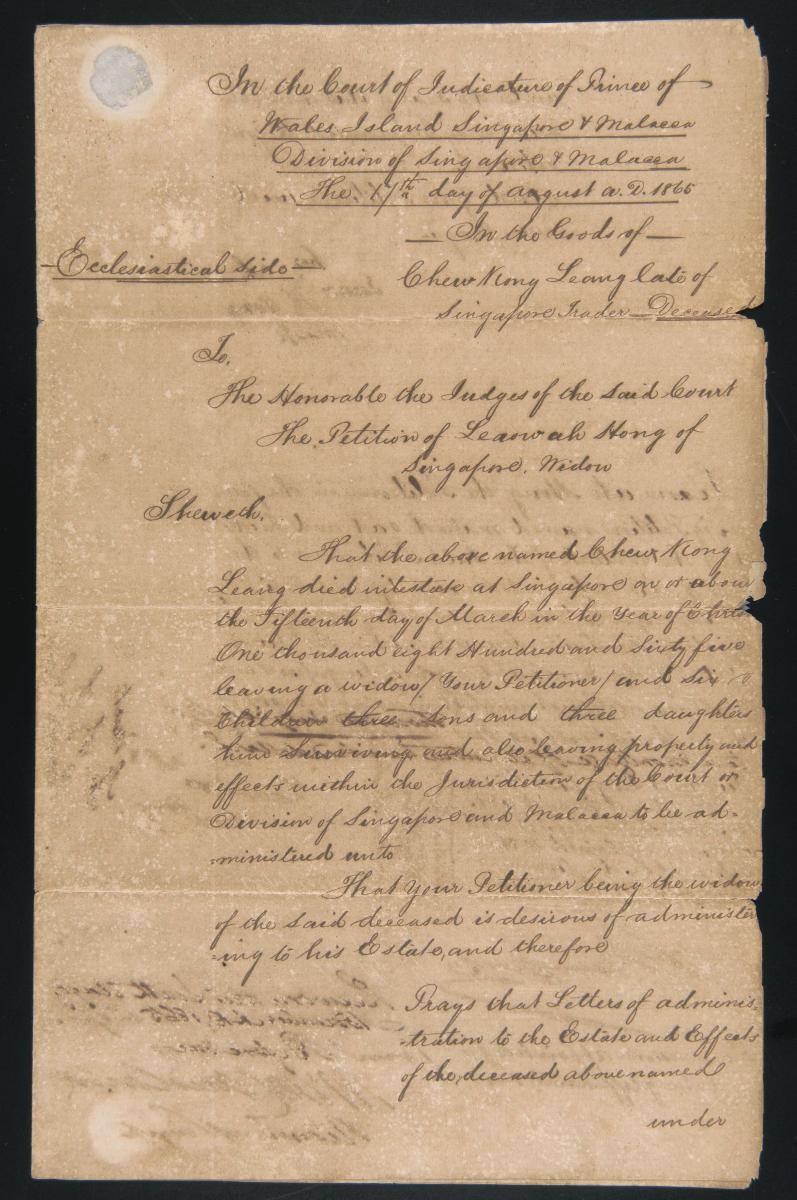 In the Court of Judicature of Prince of
Wales Island Singapore & Malacca
Division of Singapore & Malacca
The 17th day of August A.D. 1865
In the Goods of
Ecclesiastical Side
Chew Kong Leang late of
Singapore Trader Deceased
To.
The Honorable the Judges of the said Court
The Petition of Leaowah Hong of
Singapore. Widow
Sheweth.
That the above named Chew Kong
Leang died intestate at Singapore on or about
the Fifteenth day of March in the Year of
One thousand eight Hundred and Sixty five
leaving a widow / Your Petitioner / and six
Children three Sons and three daughters
him Surviving and also leaving property and
effects within the Jurisdiction of the Court or
Division of Singapore and Malacca to be ad-
-ministered unto
That Your Petitioner being the widow
of the said deceased is desirous of administer
-ing to his Estate, and therefore
Prays that Letters of adminis-
-tration to the Estate and Effects
of the deceased above named
under